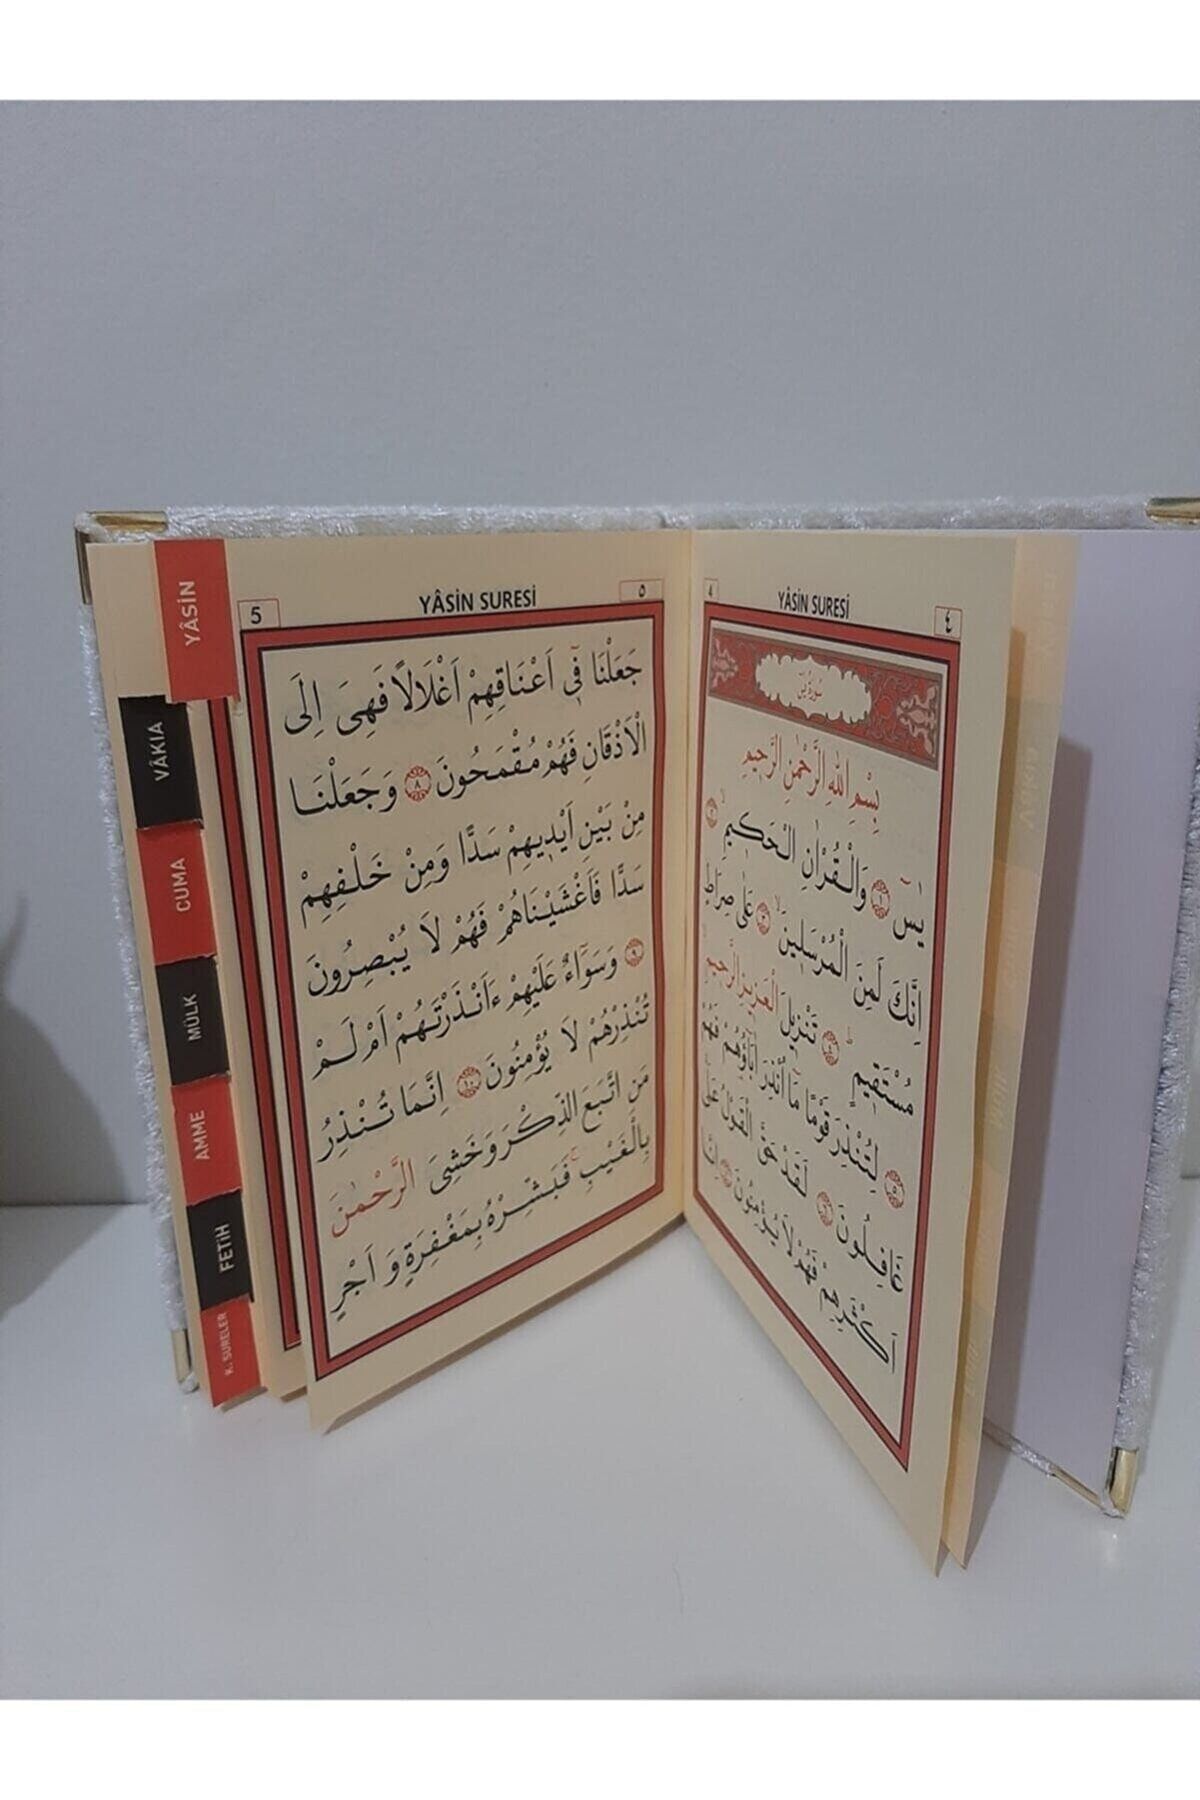 YÂSİN
VÂKIA
CUMA
MÜLK
AMME
FETİH
K. SURELER
4
YÂSİN SURESİ
٤
سُورَةُ يٰسٓ
بِسْمِ اللهِ الرَّحْمٰنِ الرَّحِيمِ
يٰسٓ ﴿١﴾ وَالْقُرْاٰنِ الْحَكِيمِ ﴿٢﴾
اِنَّكَ لَمِنَ الْمُرْسَلِينَ ﴿٣﴾ عَلٰى صِرَاطٍ
مُسْتَقِيمٍ ﴿٤﴾ تَنْزِيلَ الْعَزِيزِ الرَّحِيمِ
﴿٥﴾ لِتُنْذِرَ قَوْمًا مَٓا اُنْذِرَ اٰبَٓاؤُهُمْ فَهُمْ
غَافِلُونَ ﴿٦﴾ لَقَدْ حَقَّ الْقَوْلُ عَلٰٓى
اَكْثَرِهِمْ فَهُمْ لَا يُؤْمِنُونَ ﴿٧﴾ اِنَّا
5
YÂSİN SURESİ
٥
جَعَلْنَا فِٓي اَعْنَاقِهِمْ اَغْلَالًا فَهِيَ اِلَى
الْاَذْقَانِ فَهُمْ مُقْمَحُونَ ﴿٨﴾ وَجَعَلْنَا
مِنْ بَيْنِ اَيْدِيهِمْ سَدًّا وَمِنْ خَلْفِهِمْ
سَدًّا فَاَغْشَيْنَاهُمْ فَهُمْ لَا يُبْصِرُونَ
﴿٩﴾ وَسَوَٓاءٌ عَلَيْهِمْ ءَاَنْذَرْتَهُمْ اَمْ لَمْ
تُنْذِرْهُمْ لَا يُؤْمِنُونَ ﴿١٠﴾ اِنَّمَا تُنْذِرُ
مَنِ اتَّبَعَ الذِّكْرَ وَخَشِيَ الرَّحْمٰنَ
بِالْغَيْبِ فَبَشِّرْهُ بِمَغْفِرَةٍ وَاَجْرٍ